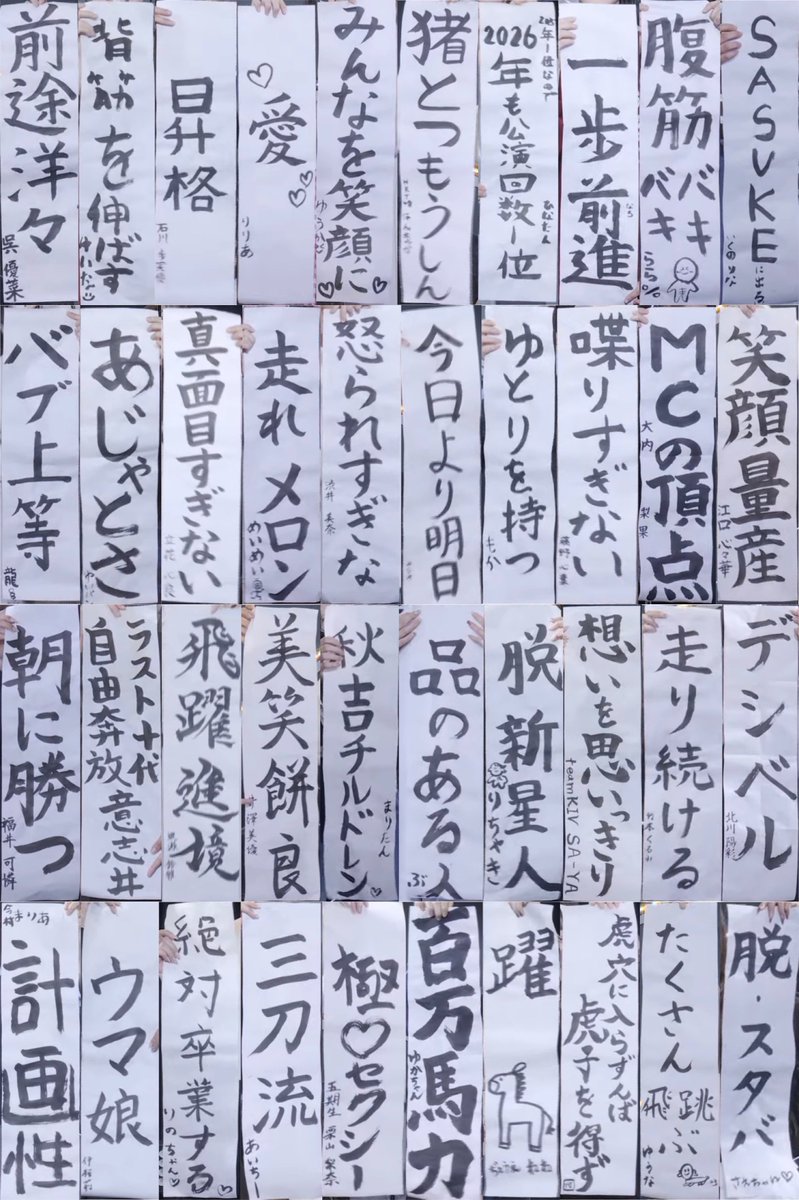 前途洋々
呉 優菜
背筋を伸ばす
けいたん
昇格
石川
愛
りりあ
みんなを笑顔に
ゆうかりん
猪とつもうしん
2025年1位なので
2026年も公演回数1位
ひなたん
一歩前進
なち
腹筋バキバキ
らら
SASUKEに出る
いくのりな
バブ上等
龍
あじゃとさ
真面目すぎない
立花 心良
走れメロン
めいめい
怒られすぎな
渋井 美奈
今日より明日
ゆとりを持つ
もか
喋りすぎない
藤野 心葉
MCの頂点
大内 梨果
笑顔量産
江口 心々華
朝に勝つ
福井 可憐
ラスト十代
自由奔放 意志井
飛躍進境
美笑餅良
井澤美優
秋吉チルドレン
まりたん
品のある人
ぶ
脱新星人
りちゃき
想いを思いっきり
teamKIV SA-YA
走り続ける
竹本くるみ
デシベル
北川陽彩
計画性
今村まりあ
ウマ娘
伊藤
絶対卒業する
りのちゃん
三刀流
あいちー
極♡セクシー
五期生 栗山 梨奈
百万馬力
ゆかちゃん
躍
虎穴に入らずんば
虎子を得ず
たくさん
飛ぶ 跳
ゆうな
脱・スタバ
さえちゃん♡